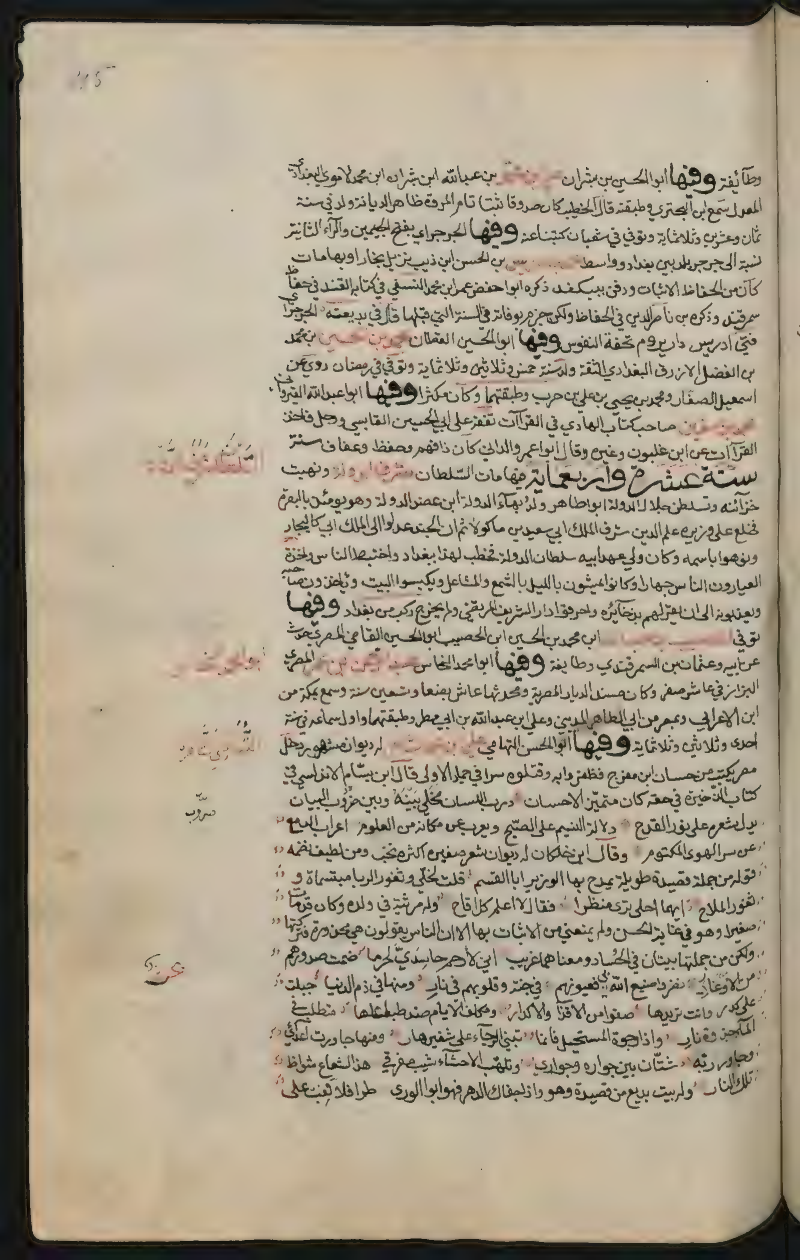 وطائفة وفيها ابو الحسين بن بشران علي بن محمد بن عبد الله ابن بشران ابن محمد الاموي البغدادي
المعدل سمع ابن البحتري وطبقته قال الخطيب كان صدوقا ثبتا تام المروة ظاهر الديانة ولد في سنة
ثمان وعشرين وثلاثماية وتوفي في شعبان كتبنا عنه وفيها الجرجراي بفتح الجيمين والراء الثانية
نسبة الى جرجرا بلد بين بغداد وواسط بن الحسن ابن ذيب نزيل بخارا وبها مات
كان من الحفاظ الاثبات ودفن ببيكند ذكره ابو حفص عمر ابن محمد النسفي في كتابه القند في حفاظ
سمرقند وذكره بن ناصر الدين في الحفاظ ولكن جزم بوفاته في السنة التي قبلها قال في بديعته الجرجراي
فتى ادريس داريروم تحفة النفوس وفيها ابو الحسين القطان محمد بن الحسين بن محمد
بن الفضل الازرق البغدادي الثقة ولد سنة خمس وثلاثين وثلاثماية وتوفي في رمضان روى عن
اسمعيل الصفار ومحمد بن يحيى بن علي بن حرب وطبقتهما وكان مكثرا وفيها ابو عبد الله القيرواني
محمد بن سفين صاحب كتاب الهادي في القراآت تفقه على ابي الحسين القابسي ورحل فاخذ
القراآت عن ابن غلبون وغيره وقال ابو عمرو الداني كان ذا فهم وحفظ وعفاف سنة
ستة عشرة واربعماية فيها مات السلطان مشرف الدولة ونهبت
خزائنه وتسلطن جلال الدولة ابو طاهر ولد بهاء الدولة ابن عضد الدولة وهو يومئذ بالبصرة
فخلع على وزيره علم الدين شرف الملك ابي سعيد بن ماكولا ثم ان الجند عدلوا الى الملك ابي كاليجار
ونوهوا باسمه وكان ولي عهد ابيه سلطان الدولة فخطب لهذا ببغداد واختبط الناس واخذ
العيارون الناس جهارا وكانوا يمشون بالليل بالشمع والمشاعل ويكبسوا البيت وياخذون صاحبه
ويعذبونه الى ان يقر لهم بذخائره واحرقوا دار الشريف المرتضى ولم يخرج ركب من بغداد وفيها
توفي الخصيب بن عبد الله ابن محمد بن الحسين ابن الخصيب ابو الحسين القاضي المصري حدث
عن ابيه وعثمان بن السمرقندي وطايفة وفيها ابو محمد النحاس عبد الرحمن بن عمر المصري
البزاز في عاشر صفر وكان مسند الديار المصرية ومحدثها عاش بضعا وتسعين سنة وسمع بمكة من
ابن الاعرابي وبمصر من ابي الطاهر المديني وعلي ابن عبد الله بن ابي مطر وطبقتهما واول سماعه في سنة
احدى وثلاثين وثلاثماية وفيها ابو الحسن التهامي علي بن محمد الشاعر له ديوان مشهور دخل
مصر بكتب من حسان ابن مفرج فظفروا به وقتلوه سرا في جمادى الاولى قال ابن بسام الاندلسي في
كتاب الذخيرة في حقه كان متميز الاحسان ذرب اللسان مخلى بينه وبين ضروب البيان
يدل شعره على فوز القدح دلالة النسيم على الصبح ويعرب عن مكانه من العلوم اعراب الدمع
عن سر الهوى المكتوم وقال ابن خلكان له ديوان شعر صغير اكثره نخب ومن لطيف نظمه
قوله من جملة قصيدة طويلة يمدح بها الوزير ابا القسم قلت لخلي وثغور الربا مبتسماة و
ثغور الملاح ايهما احلى ترى منظرا فقال لا اعلم كل اقاح وله مرثية في ولده وكان قد مات
صغيرا وهو في غاية الحسن ولم يمنعني من الاثبات بها الا ان الناس يقولون هي محذورة فتركتها
ولكن من جملتها بيتان في الحساد ومعناهما غريب اني لارحم حاسدي لحر ما ضمت صدورهم
من الاوغار نظروا صنيع الله بي فعيونهم في جنة وقلوبهم في نار ومنها في ذم الدنيا جبلت
على كدر وانت تريدها صفوا من الاقذا والاكدار ومكلف الايام ضد طباعها متطلب في
الماء جذوة نار واذا رجوت المستحيل فانما تبني الرجاء على شفير هار ومنها جاورت اعدائي
وجاور ربه شتان بين جواره وجواري وتلهب الاحشاء شيب مفرقي هذا الشعاع شواظ
تلك النار وله بيت بديع من قصيدة وهو واذا جفاك الدهر فهو ابو الورى طرا فلا تعتب على
ضروب